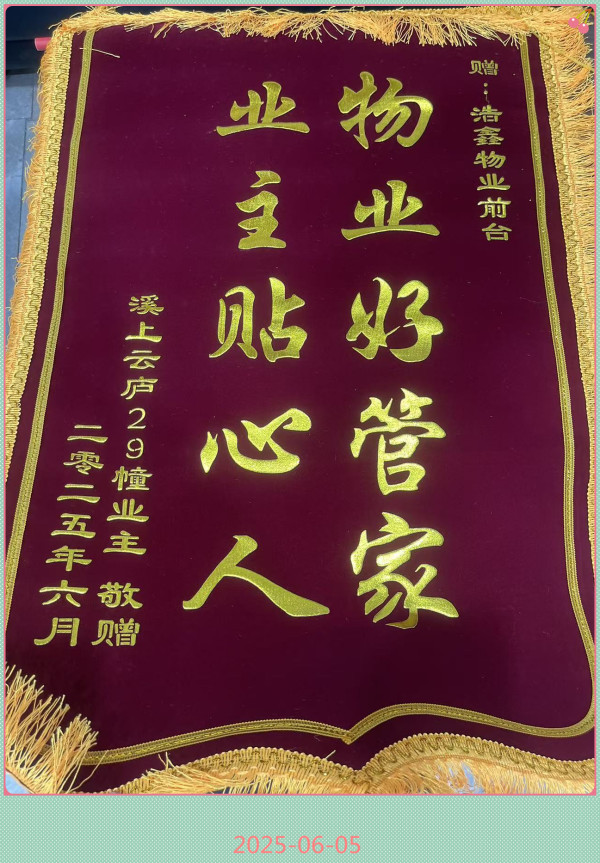 赠：浩鑫物业前台
物业好管家
业主贴心人
溪上云庐29幢业主 敬赠
二零二五年六月
2025-06-05